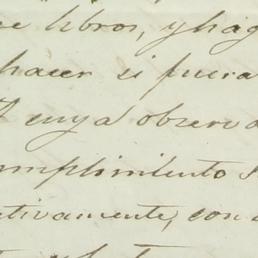 libros, y hag
hacer si fuera
cuya observa
umplimiento
tivamente, con